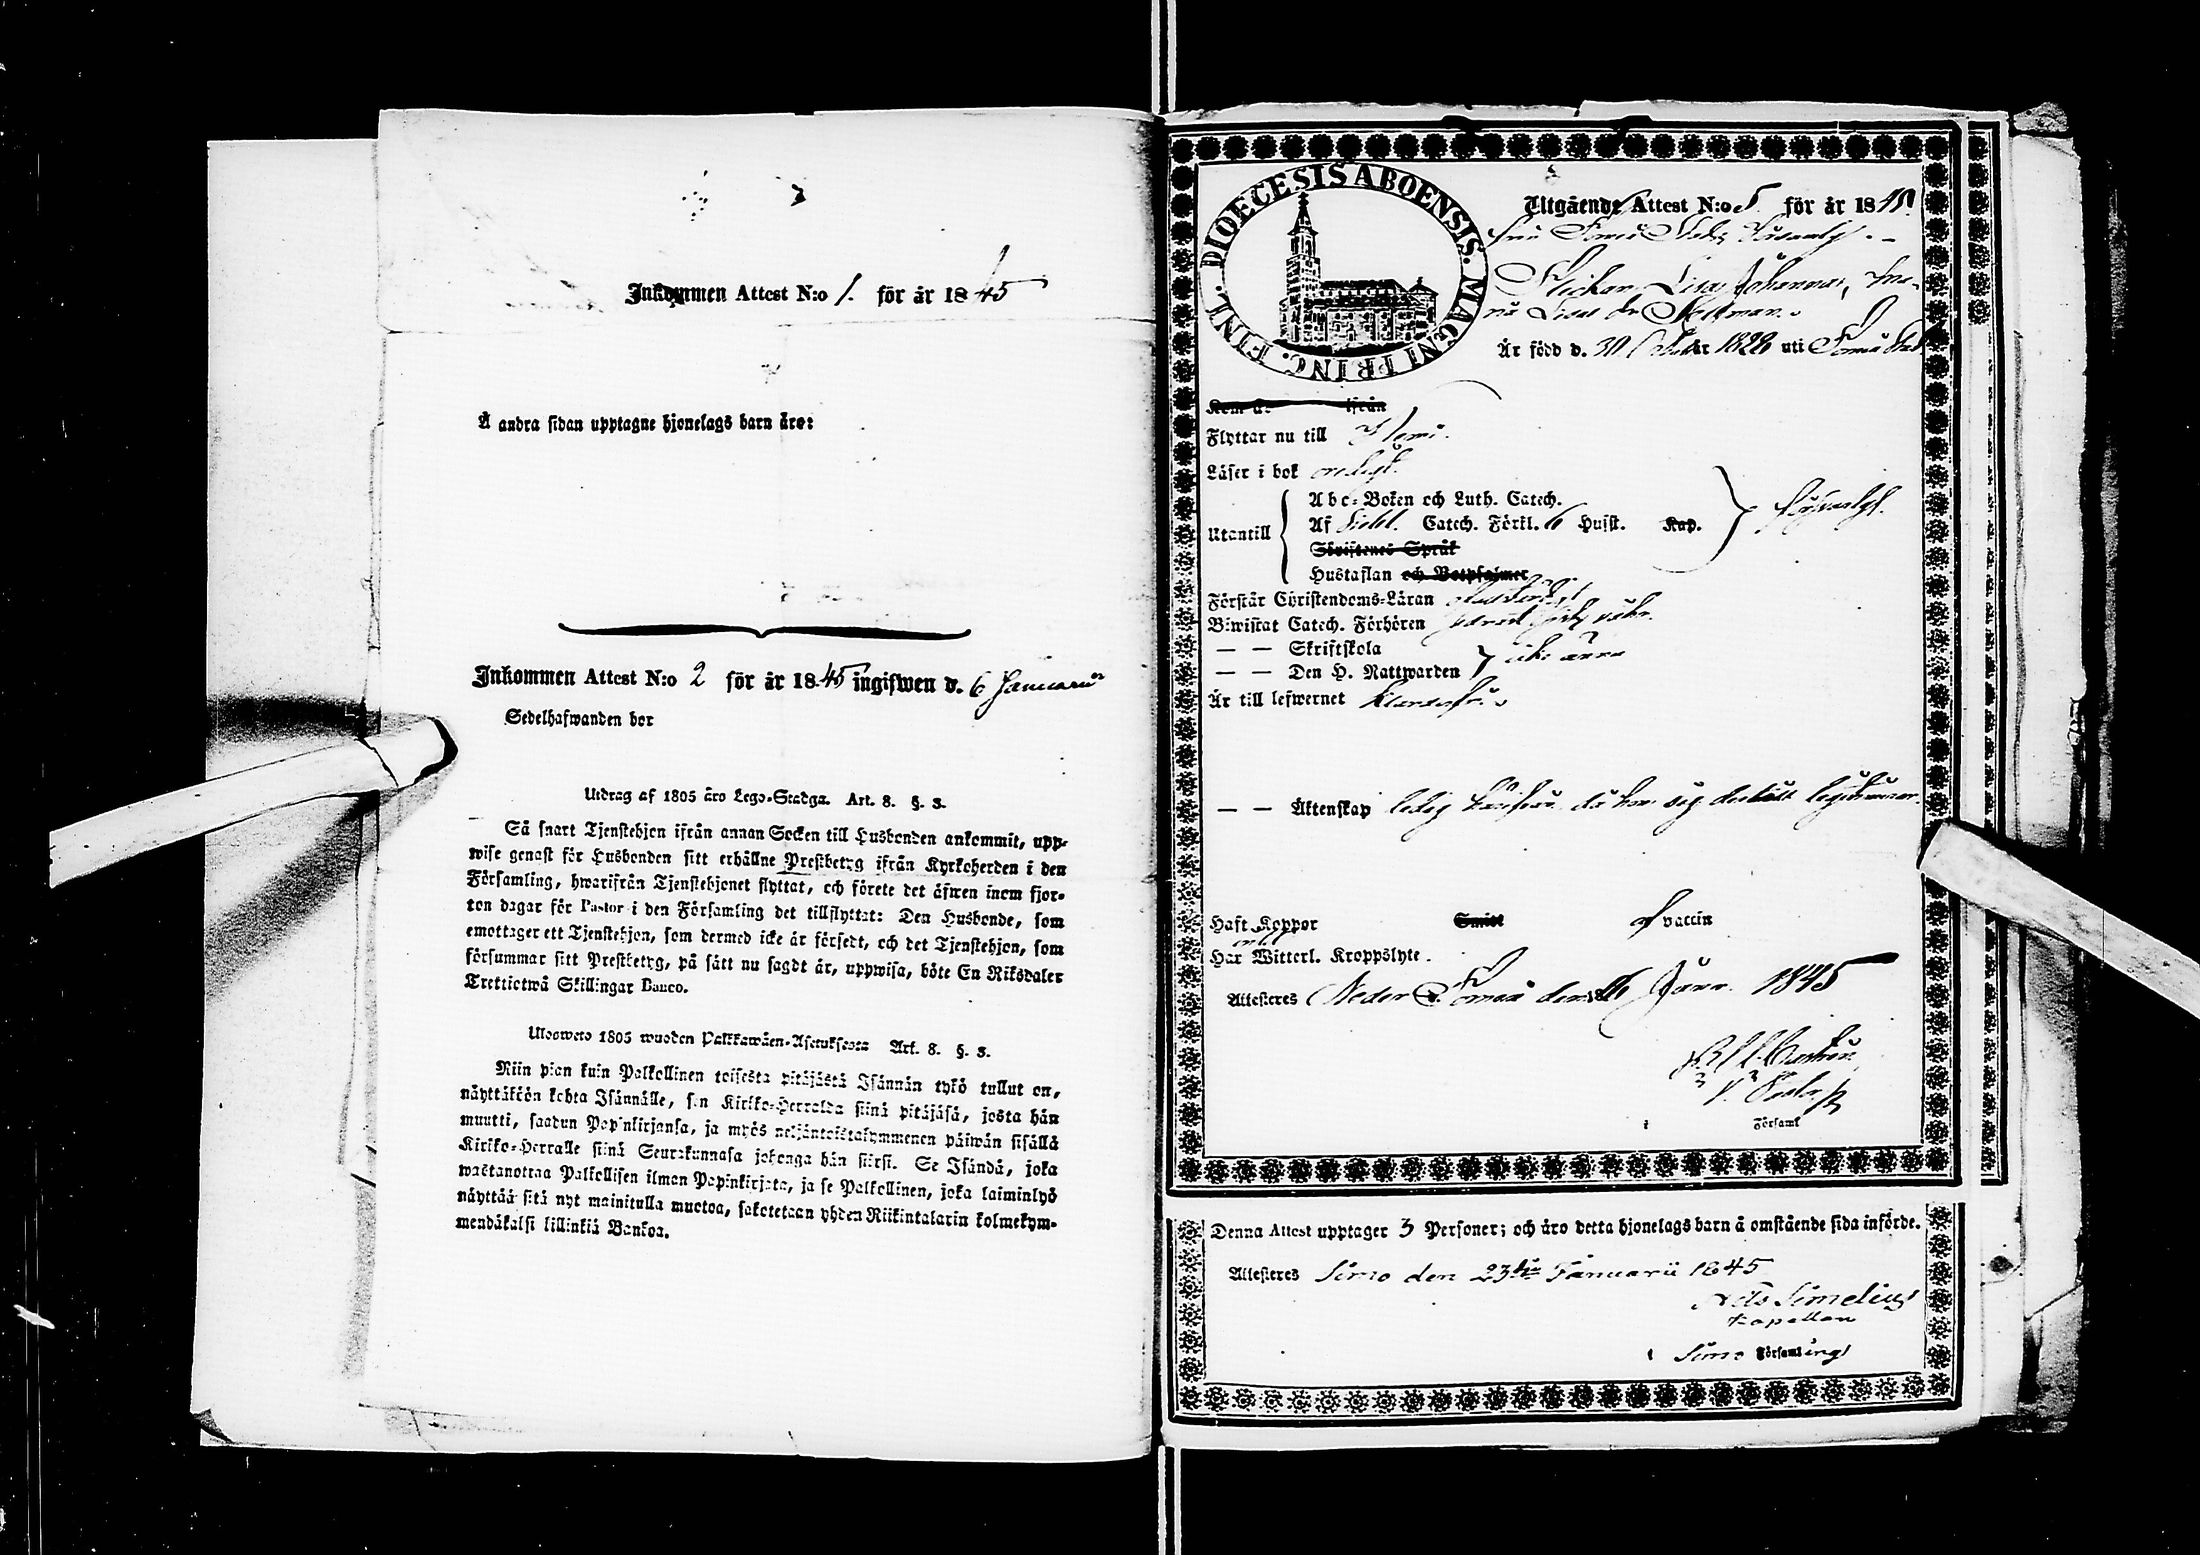 Inkommen Attest N:o 1. för år 1845
Å andra sidan upptagne hjonelags barn äro:
Inkommen Attest N:o 2 för år 1845 ingifwen d. 6 Januarii
Sedelhafwanden bor
Utdrag af 1805 åro Lego-Stadga. Art. 8. §. 3.
Så snart Tjenstehjon ifrån annan Socken till Husbonden ankommit, upp-
wise genast för Husbonden sitt erhållne Prestbetyg ifrån Kyrkoherden i den
Församling, hwarifrån Tjenstehjonet flyttat, och förete det äfwen inom fjor-
ton dagar för Pastor i den Församling det tillflyttat: Den Husbonde, som
emottager ett Tjenstehjon, som dermed icke är försedt, och det Tjenstehjon, som
försummar sitt Prestbetyg, på sätt nu sagdt är, uppwisa, böte En Riksdaler
Trettiotwå Skillingar Banco.
Ulosweto 1805 wuoden Palkkawäen-Asetuksesta Art. 8. §. 3.
Niin pian kuin Palkollinen toisesta pitäjästä Isännän tykö tullut on,
näyttäköön kohta Isännälle, sen Kirkko-Herralda siinä pitäjäsä, josta hän
muutti, saadun Pap'nkirjansa, ja myös neljäntoistakymmenen päiwän sisällä
Kirkko-Herralle siinä Seurakunnasa johonga hän siirsi. Se Isändä, joka
wastanottaa Palkollisen ilman Papinkirjata, ja se Palkollinen, joka laiminlyö
näyttää sitä nyt mainitulla muotoa, sakotetaan yhden Riikintalarin kolmekym-
mendäkaksi killinkiä Bankoa.
DIOECESIS ABOENSIS. MAGNI PRINC. FINL.
Utgående Attest N:o 5 för år 1845
från Torneå
Lisa Johanna,
Är född d. 30 år 1828 uti Torneå
Kom år ifrån
Flyttar nu till Kemi.
Läser i bok
Utantill
Abc-Boken och Luth. Catech.
Af Catech. Förkl. 6 Hufst. Kap.
Skriftenes Språk
Hustaflan och Botpsalmer
Förstår Christendoms-Läran
Biwistat Catech. Förhören
— — Skriftskola
— — Den H. Nattwarden
Är till lefwernet
— — Äktenskap ledig
Haft Koppor Smitt af vaccin
Har Witterl. Kroppslyte.
Attesteres Neder Torneå den 16 Janr. 1845
i Församl
Denna Attest upptager 3 Personer; och äro detta hjonelags barn å omstående sida införde.
Attesteres Simo den 23dje Januarii 1845
Nils Simelius
Kapellan
i Simo Församling